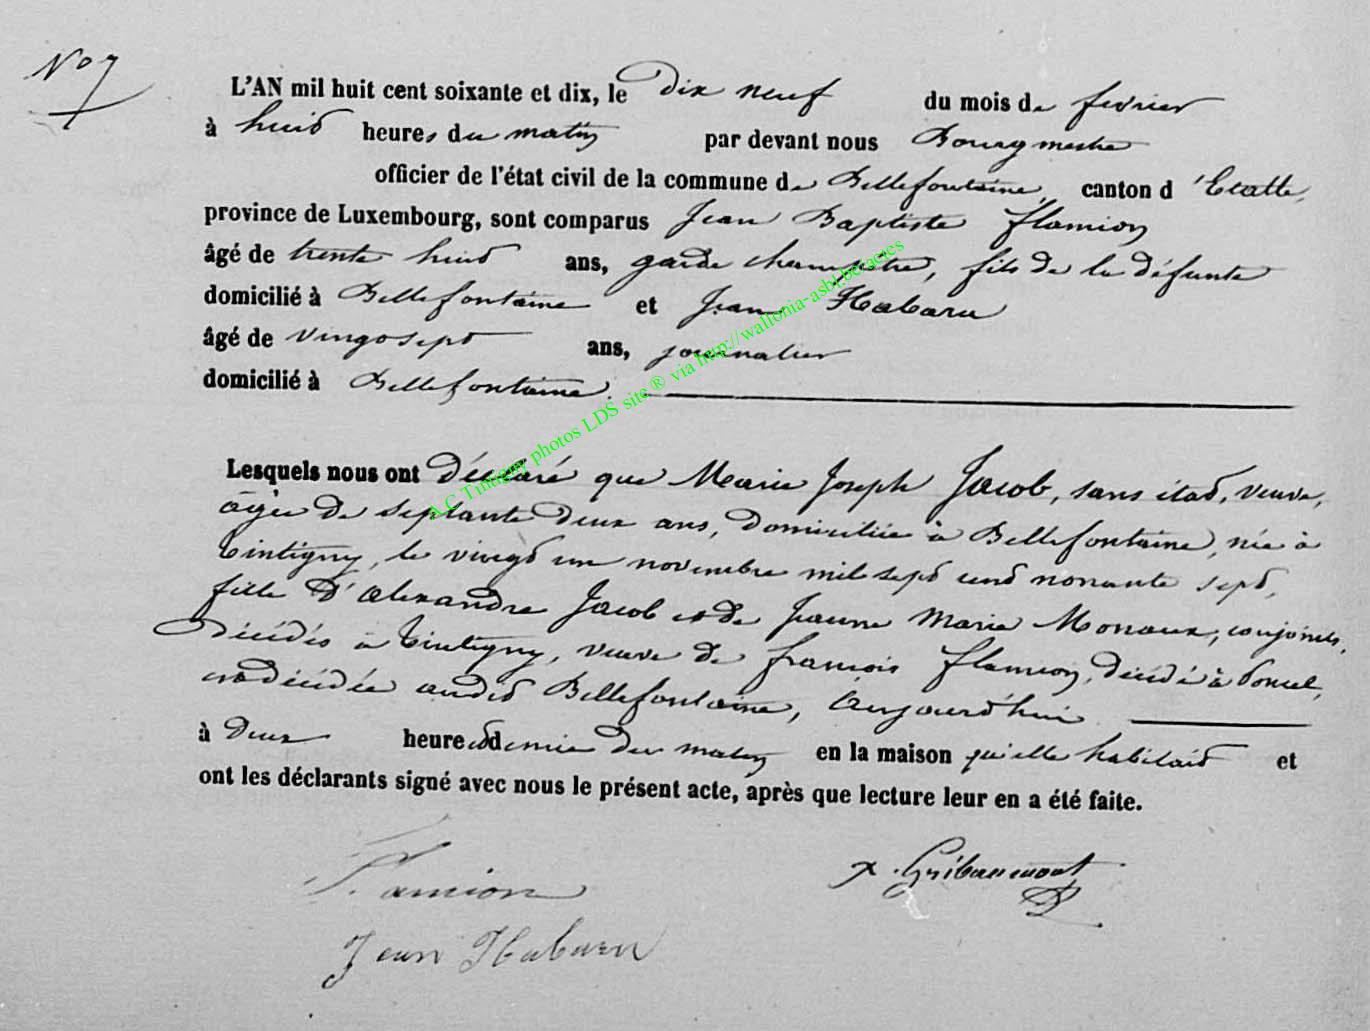 No 7
L'AN mil huit cent soixante et dix, le dix neuf du mois de fevrier
à huit heures du matin par devant nous Bourgmestre
officier de l'état civil de la commune de Bellefontaine, canton d'Etalle,
province de Luxembourg, sont comparus Jean Baptiste Flamion
âgé de trente huit ans, garde champêtre, fils de la défunte
domicilié à Bellefontaine et Jean Habaru
âgé de vingt sept ans, journalier
domicilié à Bellefontaine.
Lesquels nous ont déclaré que Marie Joseph Jacob, sans état, veuve,
âgée de septante deux ans, domiciliée à Bellefontaine, née à
Tintigny, le vingt un novembre mil sept cent nonante sept,
fille d'Alexandre Jacob et de Jeanne Marie Monaux, conjoints,
décédés à Tintigny, veuve de françois Flamion, décédé à Poncel,
est décédée audit Bellefontaine, aujourd'hui
à deux heures et demie du matin en la maison qu'elle habitait et
ont les déclarants signé avec nous le présent acte, après que lecture leur en a été faite.
Flamion
Gribaumont
Jean Habaru
A.C Tintigny photos LDS site ® via http://wallonia-asbl.be/actes